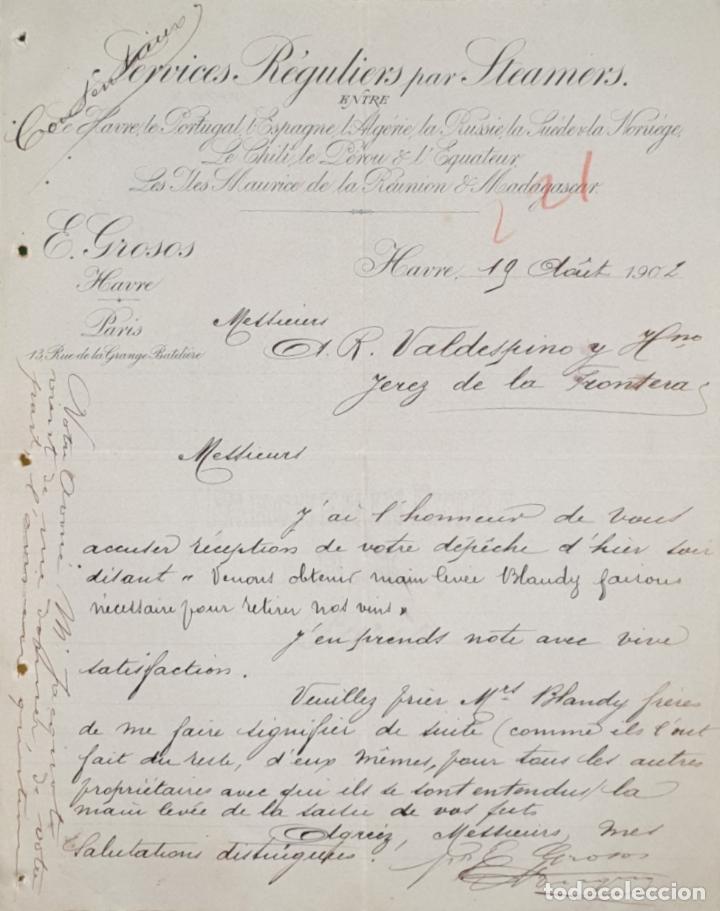 Contentieux
Services Réguliers par Steamers.
ENTRE
Le Havre, le Portugal, l'Espagne, l'Algérie, la Russie, la Suède & la Norvège,
Le Chili, le Pérou & l'Equateur
Les Iles Maurice de la Réunion & Madagascar.
21
E. Grosos
Havre
Paris
13 Rue de la Grange-Batelière
Havre, 19 Août 1902
Messieurs
A. R. Valdespino y Hno
Jerez de la Frontera
Messieurs
J'ai l'honneur de vous
accuser réception de votre dépêche d'hier soir
disant « Venons obtenir main levée Blandy faisons
nécessaire pour retirer nos vins »
J'en prends note avec vive
satisfaction.
Veuillez prier Mrs Blandy frères
de me faire signifier de suite (comme ils l'ont
fait du reste, d'eux mêmes, pour tous les autres
propriétaires avec qui ils se sont entendus) la
main levée de la saisie de vos futs
Agréez, Messieurs, mes
Salutations distinguées.
E. Grosos
Votre ami M. Jacquinot
vient de me donner de votre
part, l'
todocoleccion.net